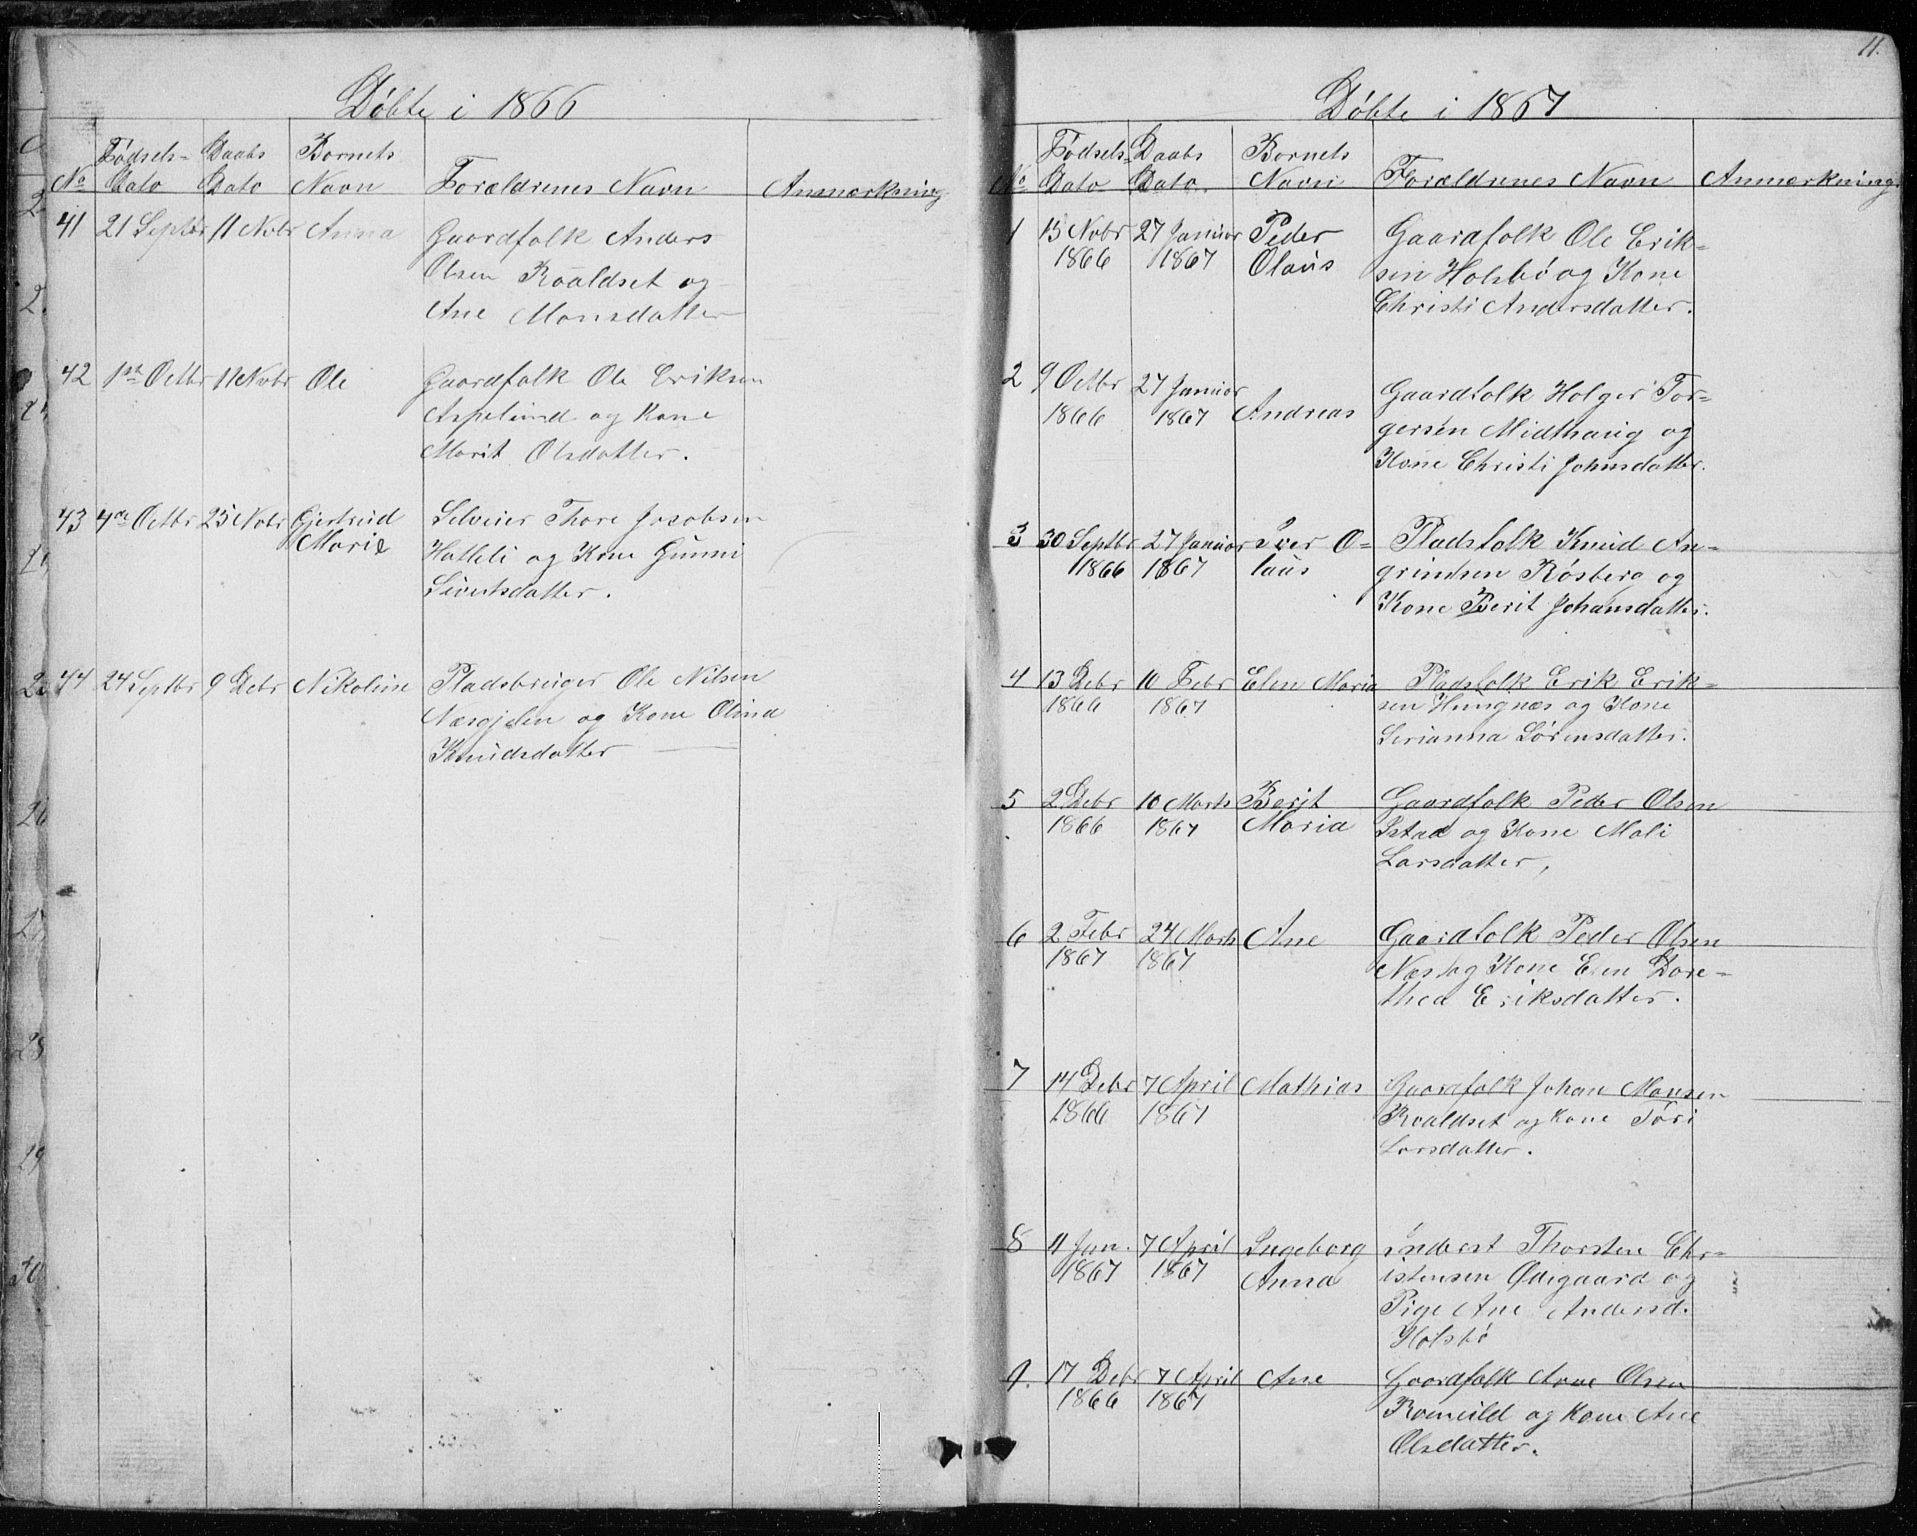 Döbte i 1866
No Födsels- Dato Daabs Dato Bornets Navn Forældrenes Navn Anmærkning
41 21 Septbr 11 Nvbr Anna Gaardfolk Anders
Olsen Roaldset og
Ane Monsdatter
42 1ste Octbr 11 Nvbr Ole Gaardfolk Ole Eriksen
Aspelund og Kone
Marit Olsdatter.
43 4de Octbr 25 Nvbr Gjertrud Gunni
Marie Selveier Thore Jacobsen
Hatleli og Kone Gunni
Sivertsdatter.
44 24 Septbr 9 Debr Nikoline Pladsbruger Ole Nilsen
Næsgjelen og Kone Olina
Knudsdatter
11.
Döbte i 1867
No Födsels- Dato Daabs Dato. Bornets Navn Forældrenes Navn Anmærkning
1 15 Nvbr 27 Januar Peder Gaardfolk Ole Erik-
1866 1867 Olaus sen Holsbö og Kone
Christi Andersdatter.
2 9 Octbr 27 Januar Gaardfolk Holger Tor-
1866 1867 Andreas gersen Midthaug og
Kone Christi Johnsdatter.
3 30 Septbr 27 Januar Iver O- Pladsfolk Knud An-
1866 1867 laus grimsen Rösberg og
Kone Berit Johansdatter.
4 13 Debr 10 Febr Elen Maria Pladsfolk Erik Erik-
1866 1867 sen Hungnæs og Kone
Serianna Sörensdatter.
5 2 Debr 10 Marts Berit Gaardfolk Peder Olsen
1866 1867 Maria Istad og Kone Mali
Larsdatter,
6 2 Febr 24 Marts Ane Gaardfolk Peder Olsen
1867 1867 Næs og Kone Elen Dore-
thea Eriksdatter.
7 14 Debr 7 April Mathias Gaardfolk Johan Monsen
1866 1867 Roaldset og Kone Töri
Larsdatter.
8 11 Jan. 7 April Ingeborg Inderst Thorsten Chr-
1867 1867 Anna istensen Ödegaard og
Pige Ane Andersd.
Holsbö
9. 17 Debr 7 April Ane Gaardfolk Arne Olsen
1866 1867 Romuld og Kone Ane
Olsdatter.